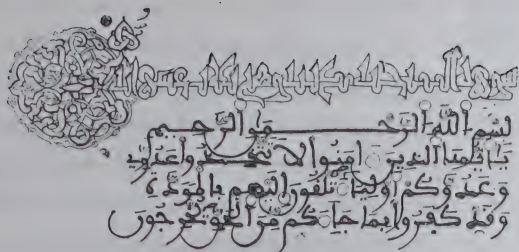 سورة
بسم الله الرحمن الرحيم
يأيها الذين امنوا لا تتخذوا عدوي
وعدوكم أولياء تلقون إليهم بالمودة
وقد كفروا بما جاءكم من الحق يخرجون